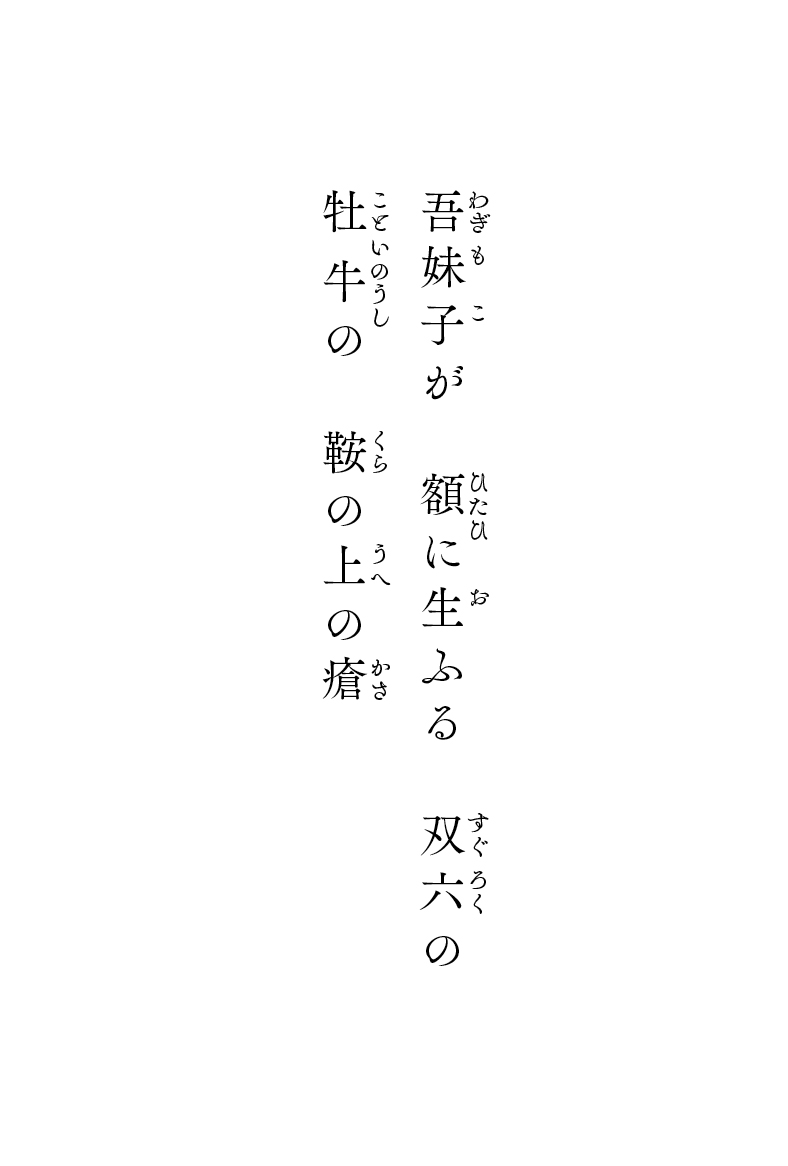 吾妹子が　額に生ふる　双六の
わぎもこ　ひたひ　お　すぐろく
牡牛の　鞍の上の瘡
こといのうし　くら　うへ　かさ